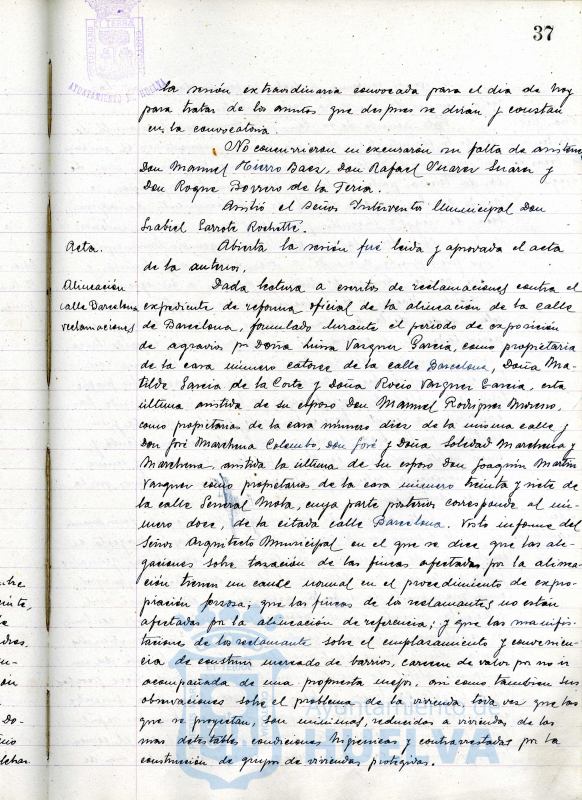 37
AYUNTAMIENTO DE HUELVA
la sesión extraordinaria convocada para el día de hoy
para tratar de los asuntos que despues se dirán y constan
en la convocatoria.
No concurrieron ni excusaron su falta de asistencia
Don Manuel Hierro Baez, Don Rafael Suarez Suarez y
Don Roque Borrero de la Feria.
Asistió el Señor Interventor Municipal Don
Isabiel Garrote Rochette.
Acta.
Abierta la sesión fué leida y aprovada el acta
de la anterior.
Alineación
calle Barcelona
reclamaciones
Dada lectura a escritos de reclamaciones contra el
expediente de reforma oficial de la alineación de la calle
de Barcelona, formulado durante el periodo de exposición
de agravios por Doña Luisa Vazquez Garcia, como propietaria
de la casa número catorce de la calle Barcelona, Doña Ma-
tilde Garcia de la Corte y Doña Rocio Vazquez Garcia, esta
última asistida de su esposo Don Manuel Rodriguez Moreno,
como propietarias de la casa número diez de la misma calle y
Don José Marchena Colombo, Don José y Doña Soledad Marchena y
Marchena, asistida la última de su esposo Don Joaquin Martin
Vazquez como propietarios de la casa número treinta y siete de
la calle General Mola, cuya parte posterior corresponde al nú-
mero doce, de la citada calle Barcelona. Visto informe del
Señor Arquitecto Municipal en el que se dice que las ale-
gaciones sobre tasación de las fincas afectadas por la alinea-
ción tienen un cauce normal en el procedimiento de expro-
piación forzosa; que las fincas de los reclamantes no están
afectadas por la alineación de referencia; y que las manifes-
taciones de los reclamantes sobre el emplazamiento y convenien-
cia de construir mercado de barrios, carecen de valor por no ir
acompañada de una propuesta mejor, asi como tambien sus
observaciones sobre el problema de la vivienda toda vez que las
que se proyectan, son minimas, reducidos a viviendas de las
mas detestables condiciones higienicas y contrarrestadas por la
construcción de grupos de viviendas protegidas.
Ayuntamiento de
HUELVA